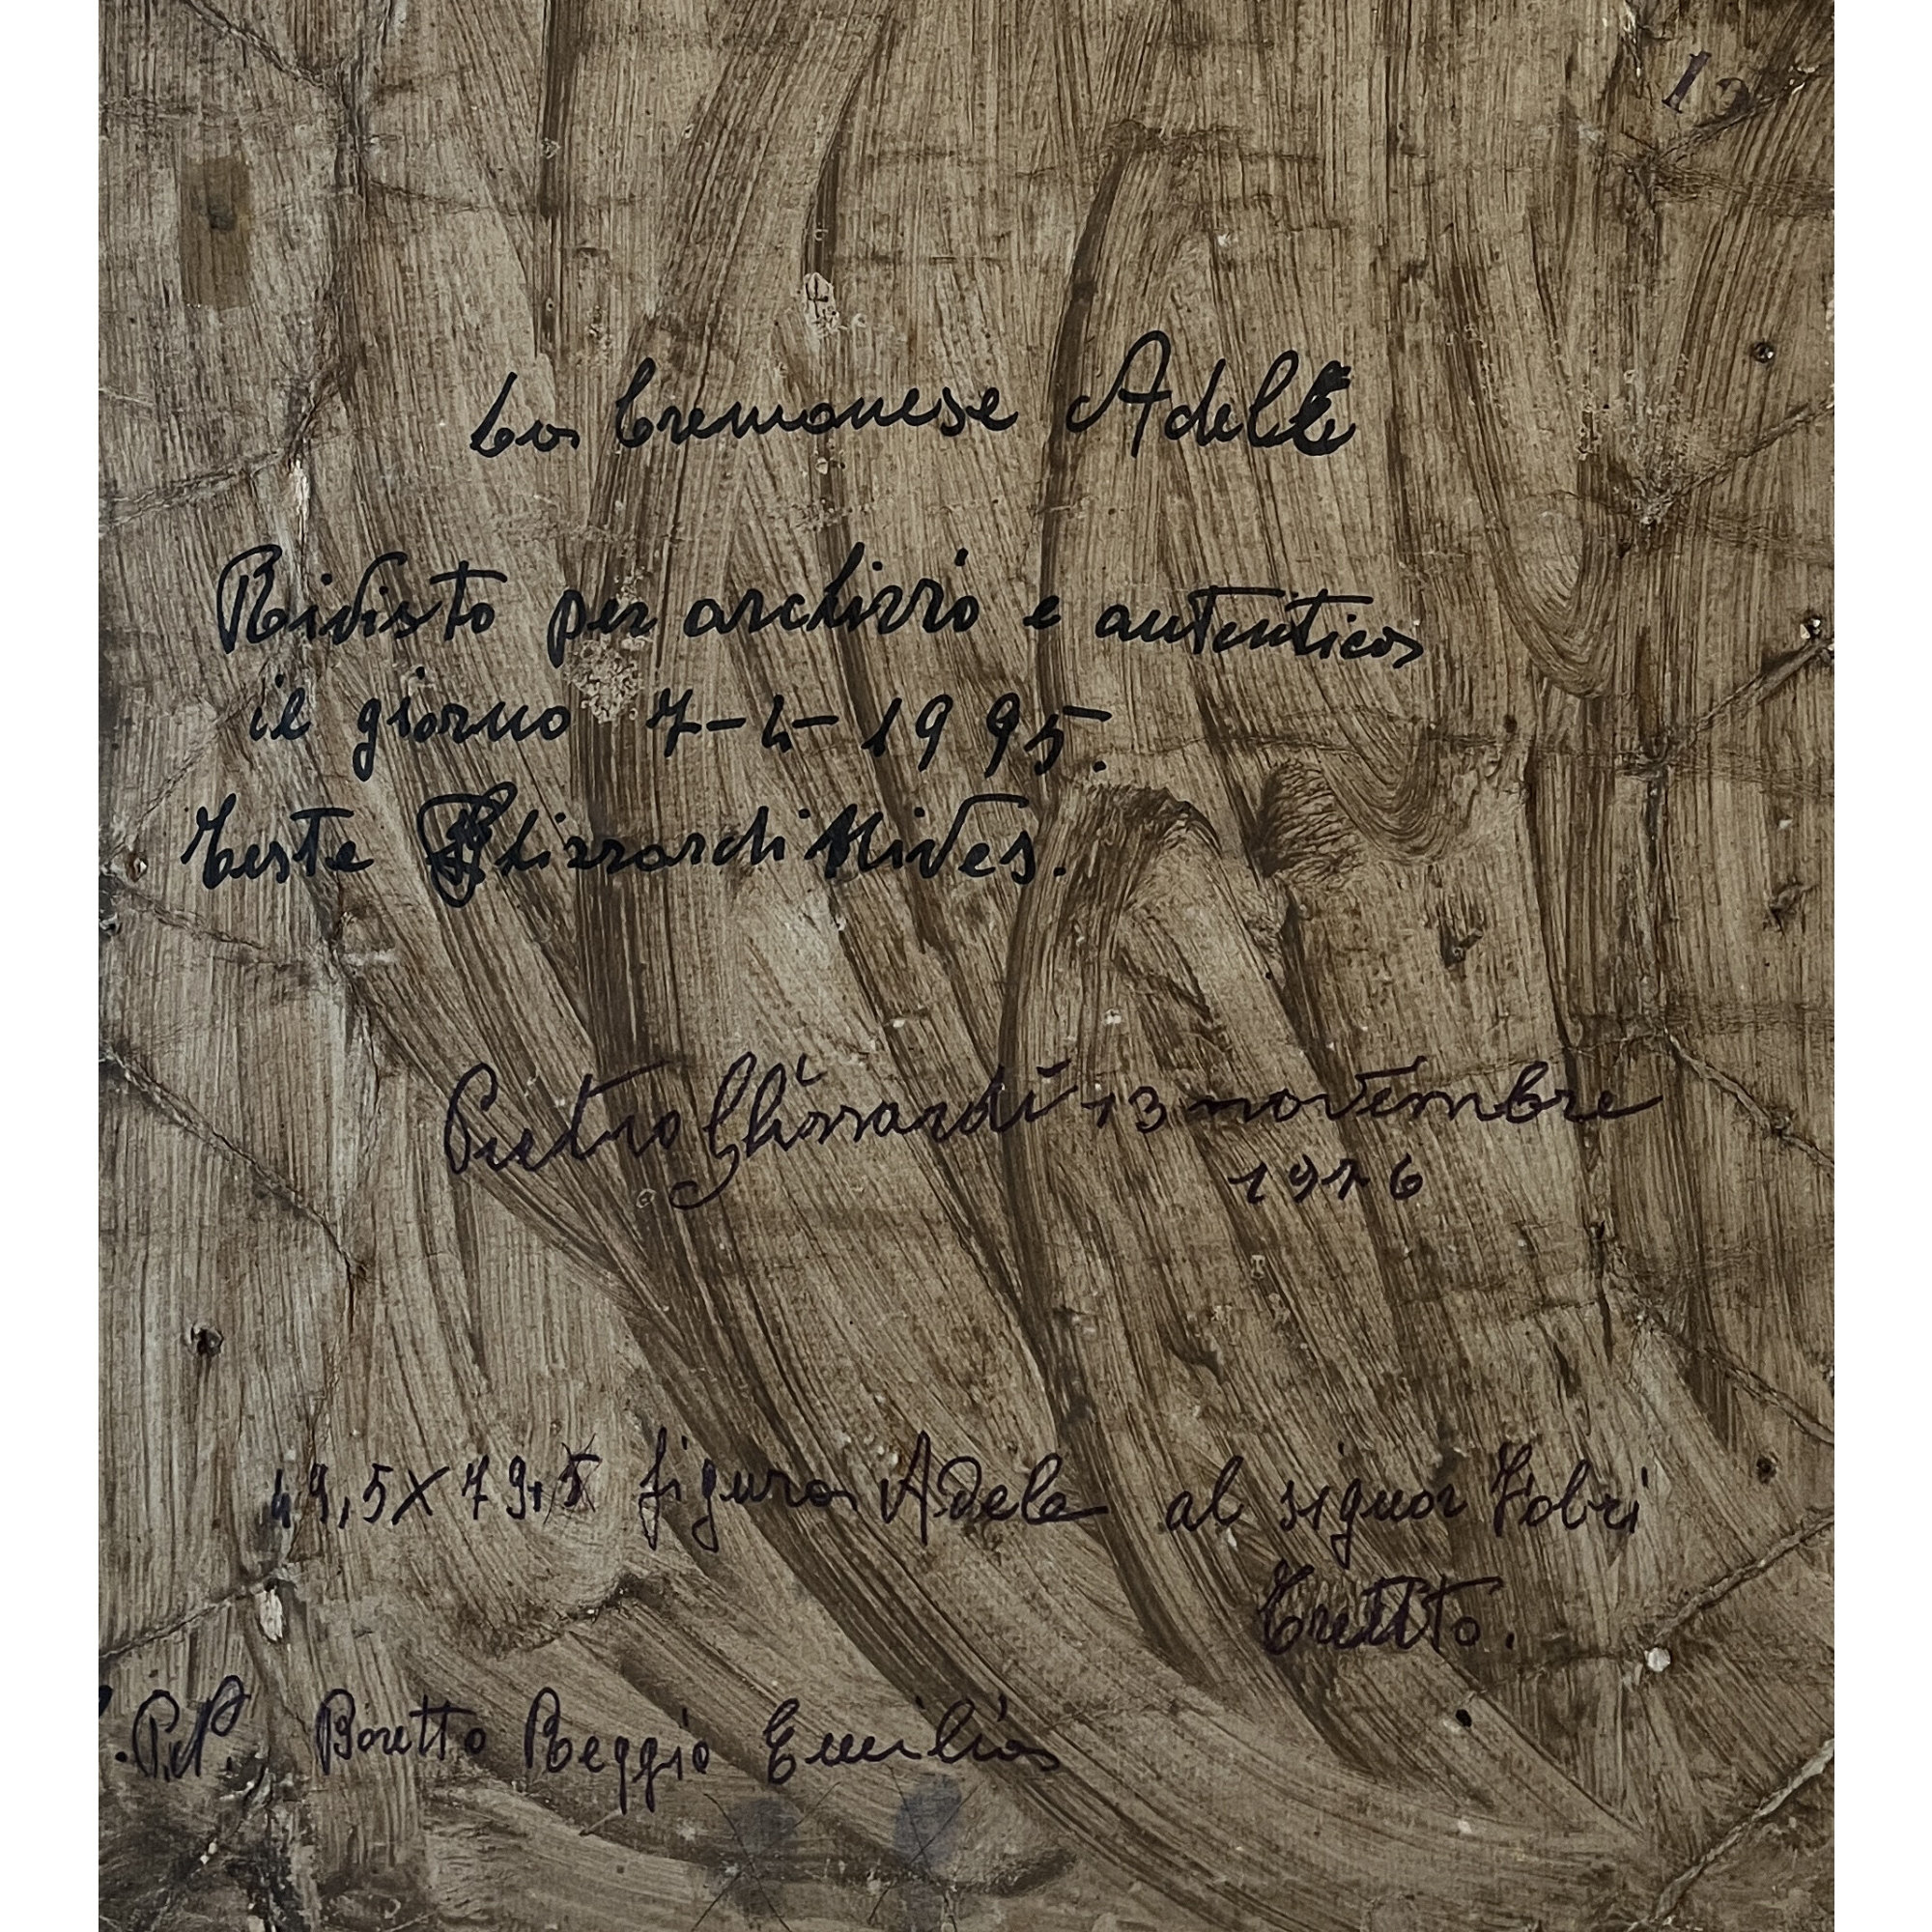 La Cremonese Adele
Rivisto per archivio e autentica
il giorno 7-4-1995.
Teste Ghizzardi Nives.
Pietro Ghizzardi 13 novembre
1976
49,5X79,5 figura Adele al signor
P.P., Boretto Reggio Emilia